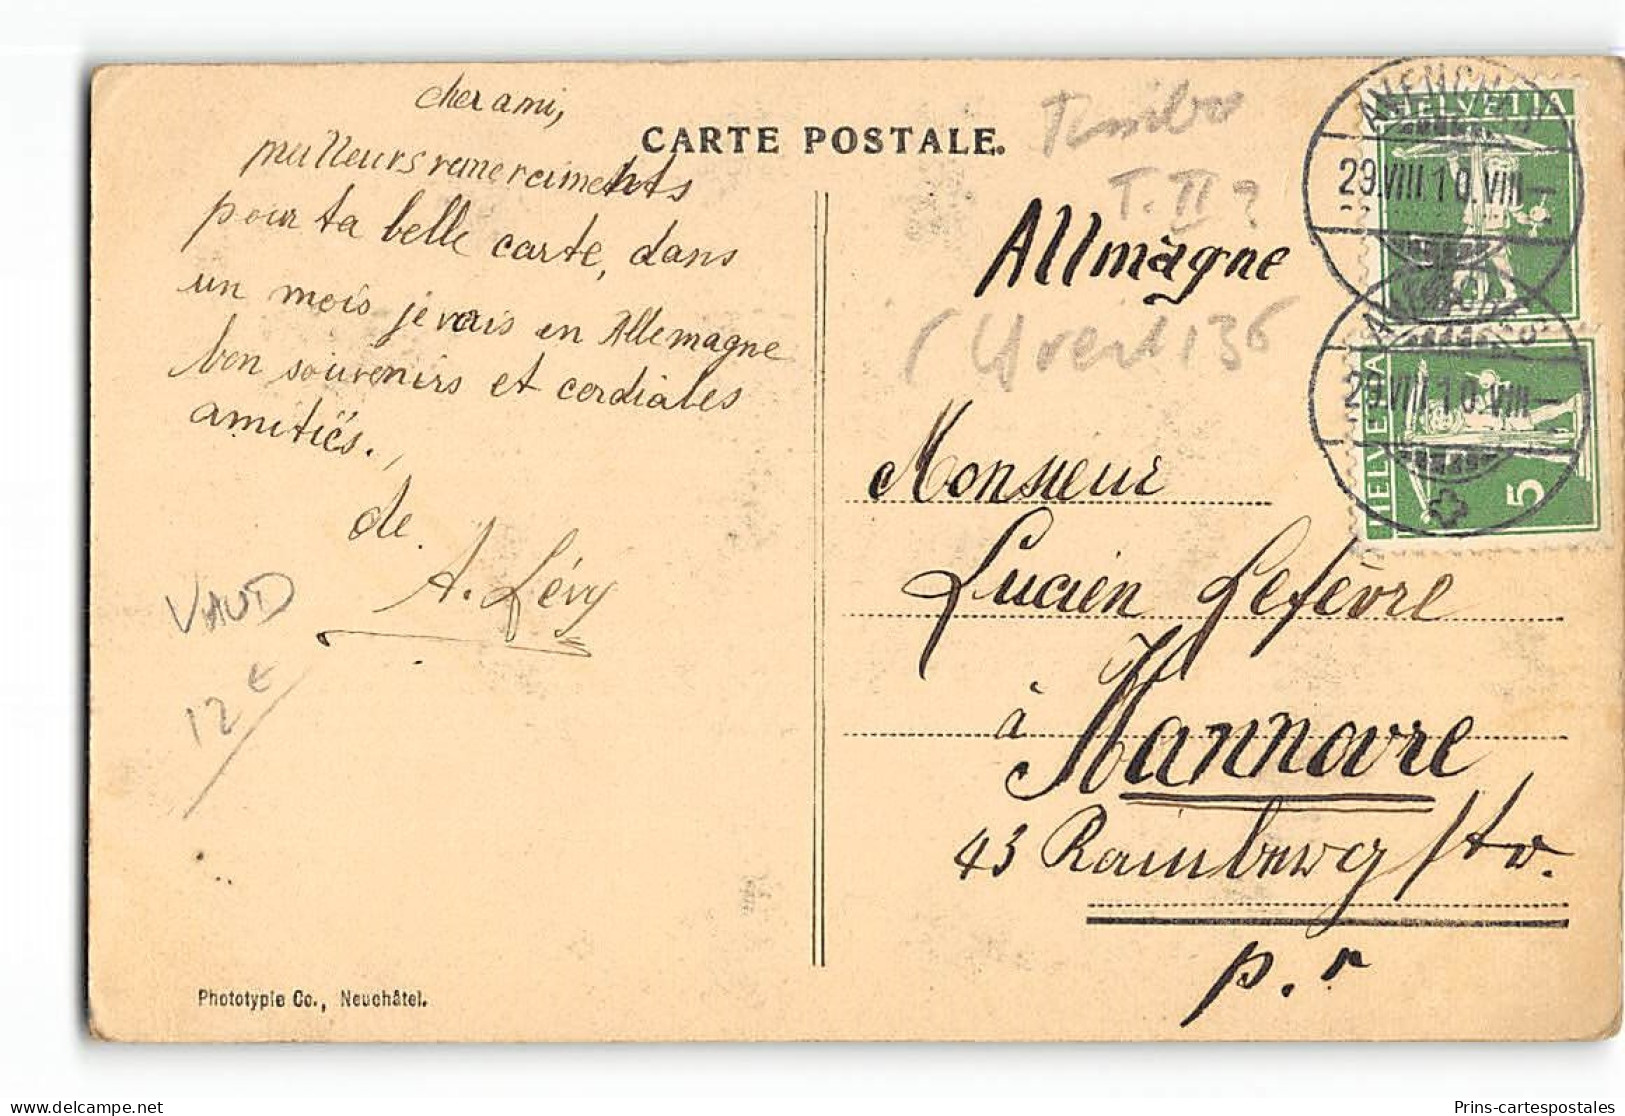 cher ami,
meilleurs remerciments
pour ta belle carte, dans
un mois je vais en Allemagne
bon souvenirs et cordiales
amitiés.
de
A. Lévy
VAUD
12€
Phototypie Co., Neuchâtel.
CARTE POSTALE.
T.II?
Allmagne
136
Monsieur
Lucien Lefèvre
à Hannovre
43 Rainberg Str.
p. r
HELVETIA
AVENCHES
29.VIII.10.VIII–
AVENCHES
29.VIII.10.VIII–
HELVETIA
5
delcampe.net
Prins-cartespostales